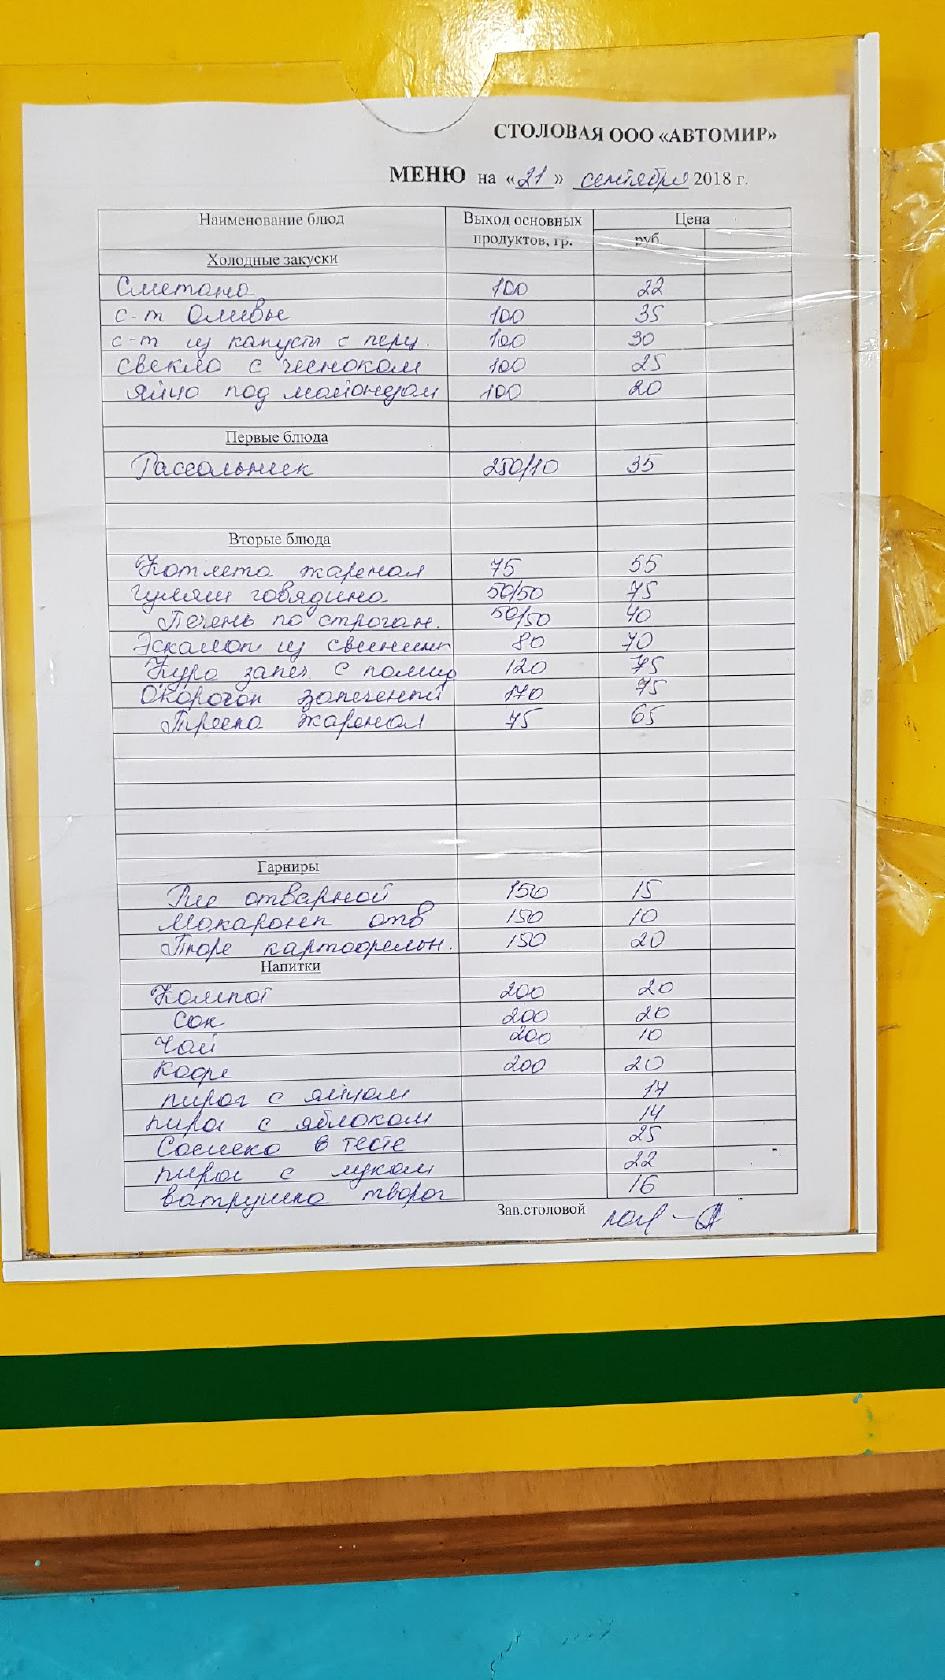 СТОЛОВАЯ ООО «АВТОМИР»
МЕНЮ на «21» сентября 2018 г.
Наименование блюд Выход основных продуктов, гр. Цена
руб.
Холодные закуски
Сметана 100 22
с-т Оливье 100 35
с-т из капусты с перц. 100 30
свекла с чесноком 100 25
яйцо под майонезом 100 20
Первые блюда
Рассольник 250/10 35
Вторые блюда
Котлета жареная 75 55
Гуляш говядина 50/50 75
Печень по строган. 50/50 40
Эскалоп из свинины 80 70
Кура запеч. с помид 120 75
Окорочок запеченый 110 75
Треска жареная 75 65
Гарниры
Рис отварной 150 15
Макароны отв 150 10
Пюре картофельн. 150 20
Напитки
Компот 200 20
Сок 200 20
Чай 200 10
Кофе 200 20
пирог с яйцом 14
пирог с яблоком 14
Сосиска в тесте 25
пирог с луком 22
ватрушка творог 16
Зав.столовой